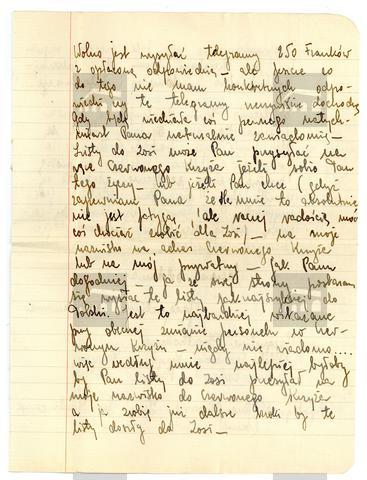 Wolno jest wysyłać telegramy 250 Franków
z opłaconą odpowiedzią – ale jeszcze co
do tego nie mam konkretnych odpo-
wiedzi czy te telegramy
Gdy będę wiedziała coś pewnego natych-
miast Pana naturalnie zawiadomię –
Listy do Zosi może Pan przysyłać na
ręce Czerwonego Krzyża jeżeli sobie Pan
tego życzy – lub jeżeli Pan chce (gdyż
zapewniam Pana że dla mnie to absolutnie
nie jest fatygą, ale raczej radością móc
coś chociaż zrobić dla Zosi) – na moje
nazwisko na adres Czerwonego Krzyża
lub na mój prywatny – jak Panu
dogodniej a ja ze swej strony postaram
się wysłać te listy jak najszybciej do
Polski. Jest to najbardziej wskazane
przy obecnej zmianie personelu w Czer-
wonym Krzyżu – nigdy nie wiadomo....
więc według mnie najlepiej byłoby
by Pan listy do Zosi przesyłał na
moje nazwisko do Czerwonego Krzyża
a ja zrobię już dalsze kroki by te
listy doszły do Zosi –